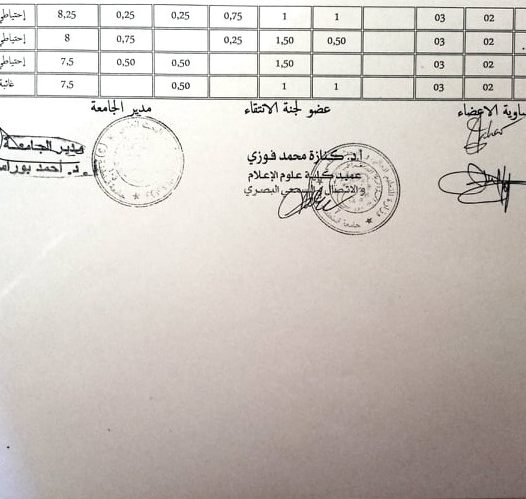 02 03 1 1 0,75 0,25 0,25 8,25 إحتياطي
02 03 0,50 1,50 0,25 0,75 8 إحتياطي
02 03 1,50 0,50 0,50 7,5 إحتياطي
02 03 1 1 0,50 7,5 غائبة
الاعضاء عضو لجنة الانتقاء مدير الجامعة
أ.د. كنازة محمد فوزي
عميد كلية علوم الإعلام
والاتصال والسمعي البصري
مدير الجامعة
د. أحمد